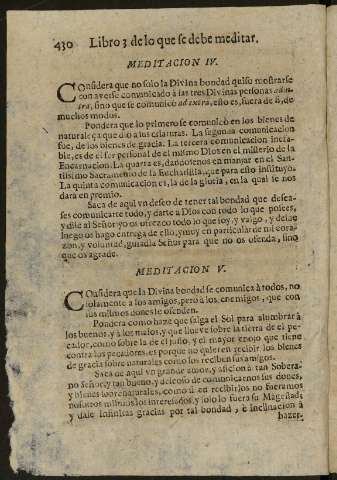 430 Libro 3 de lo que se debe meditar.
MEDITACION IV.
Considera que no solo la Divina bondad quiso mostrarse
con averse comunicado à las tres Divinas personas ad in-
tra, sino que se comunicò ad extra, esto es, fuera de si, de
muchos modos.
Pondera que lo primero se comunicò en los bienes de
naturaleza que diò a las criaturas. La segunda comunicacion
fue, de los bienes de gracia. La tercera comunicacion inefa-
ble, es de el ser personal de el mismo Dios en el misterio de la
Encarnacion. La quarta es, dandosenos en manjar en el San-
tissimo Sacramento de la Eucharistia, que para esto instituyò.
La quinta comunicacion es, la de la gloria, en la qual se nos
darà en premio.
Saca de aqui vn deseo de tener tal bondad que desea-
ses comunicarte todo, y darte a Dios con todo lo que posees,
y dile al Señor: yo os ofrezco todo lo que soy, y valgo, y desde
luego os hago entrega de ello, y muy en particular de mi cora-
zon, y voluntad, guiadla Señor para que no os ofenda, sino
que os agrade.
MEDITACION V.
Considera que la Divina bondad se comunica à todos, no
solamente a los amigos, pero à los enemigos, que con
sus mismos dones le ofenden.
Pondera como haze que salga el Sol para alumbrar à
los buenos, y à los malos, y que llueve sobre la tierra de el pe-
cador, como sobre la de el justo, y el mayor enojo que tiene
contra los pecadores, es porque no quieren recibir los bienes
de gracia sobre naturales como los reciben sus amigos.
Saca de aqui vn grande amor, y aficion à tan Sobera-
no Señor, y tan bueno, y deseoso de comunicarnos sus dones,
y bienes sobrenaturales, como si en recibirlos no fueramos
nosotros mismos los interesados, y solo lo fuera su Magestad,
y dale infinitas gracias por tal bondad, è inclinacion à
hazer-